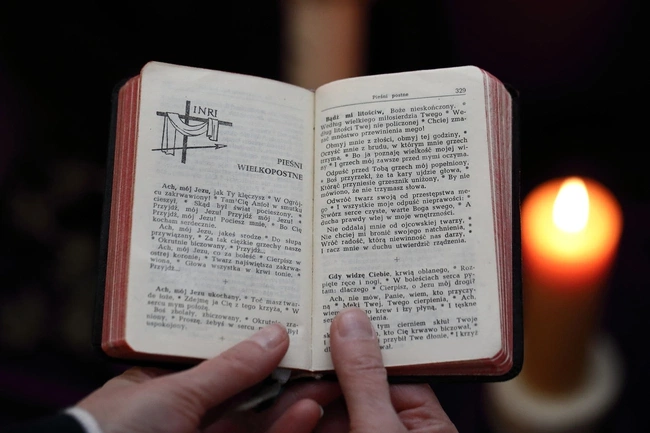 INRI
PIEŚNI
WIELKOPOSTNE
Ach, mój Jezu, jak Ty klęczysz * W Ogrój-
cu zakrwawiony! * Tam Cię Anioł w smutku
cieszył, * Skąd był świat pocieszony. *
Przyjdź, mój Jezu! Przyjdź, mój Jezu! *
Przyjdź, mój Jezu! Pociesz mnie, * Bo Cię
kocham serdecznie.
Ach, mój Jezu, jakeś srodze * Do słupa
przywiązany, * Za tak ciężkie grzechy nasze
* Okrutnie biczowany, * Przyjdź...
Ach, mój Jezu, co za boleść * Cierpisz w
ostrej koronie, * Twarz najświętsza zakrwa-
wiona, * Głowa wszystka w krwi tonie, *
Przyjdź...
Ach, mój Jezu ukochany, * Toć masz twar-
de łoże, * Zdejmą ja Cię z tego krzyża, * W
sercu mym położę.
Boś zbolały, zbiczowany, * Okrutnie zra-
niony, * Proszę, żebyś w sercu * Był
uspokojony.
Pieśni postne 329
Bądź mi litościw, Boże nieskończony, *
Według wielkiego miłosierdzia Twego * We-
dług litości Twej nie policzonej * Chciej zma-
zać mnóstwo przewinienia mego!
Obmyj mnie z złości, obmyj tej godziny, *
Oczyść mnie z brudu, w którym mnie grzech
trzyma, * Bo ja poznaję wielkość mojej wi-
ny * I grzech mój zawsze przed mymi oczyma.
Odpuść przed Tobą grzech mój popełniony,
* Boś przyrzekł, że ta kary ujdzie głowa, *
Której przyniesie grzesznik uniżony, * By nie
mówiono, że nie trzymasz słowa.
Odwróć twarz swoją od przestępstwa me-
go * I wszystkie moje odpuść nieprawości: *
Stwórz serce czyste, warte Boga swego, * A
ducha prawdy wlej w moje wnętrzności.
Nie oddalaj mnie od ojcowskiej twarzy,
Nie chciej mi bronić swojego natchnienia,
Wróć radość, którą niewinność nas darzy,
I racz mnie w duchu utwierdzić rządzenia.
Gdy widzę Ciebie, krwią oblanego, * Roz-
pięte ręce i nogi, * W boleściach serca py-
tam: dlaczego * Cierpisz, o Jezu mój drogi?
Ach, nie mów, Panie, wiem, kto przyczy-
ną * Męki Twej, Twego cierpienia, * Ach,
mego to krew i łzy płyną,
tym cierniem skłuł Twoje
kto Cię krwawo biczował, *
przybił Twe dłonie, * I krzyż